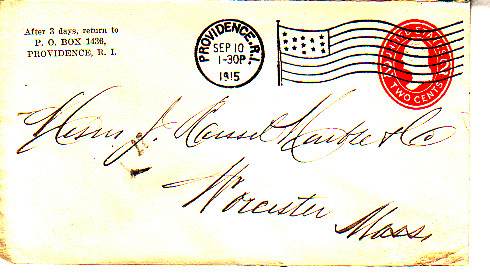 After 3 days, return to
P. O. BOX 1436,
PROVIDENCE, R. I.
PROVIDENCE, R.I.
SEP 10
1-30P
1915
UNITED STATES
TWO CENTS
J. & Co
Worcester
Mass.